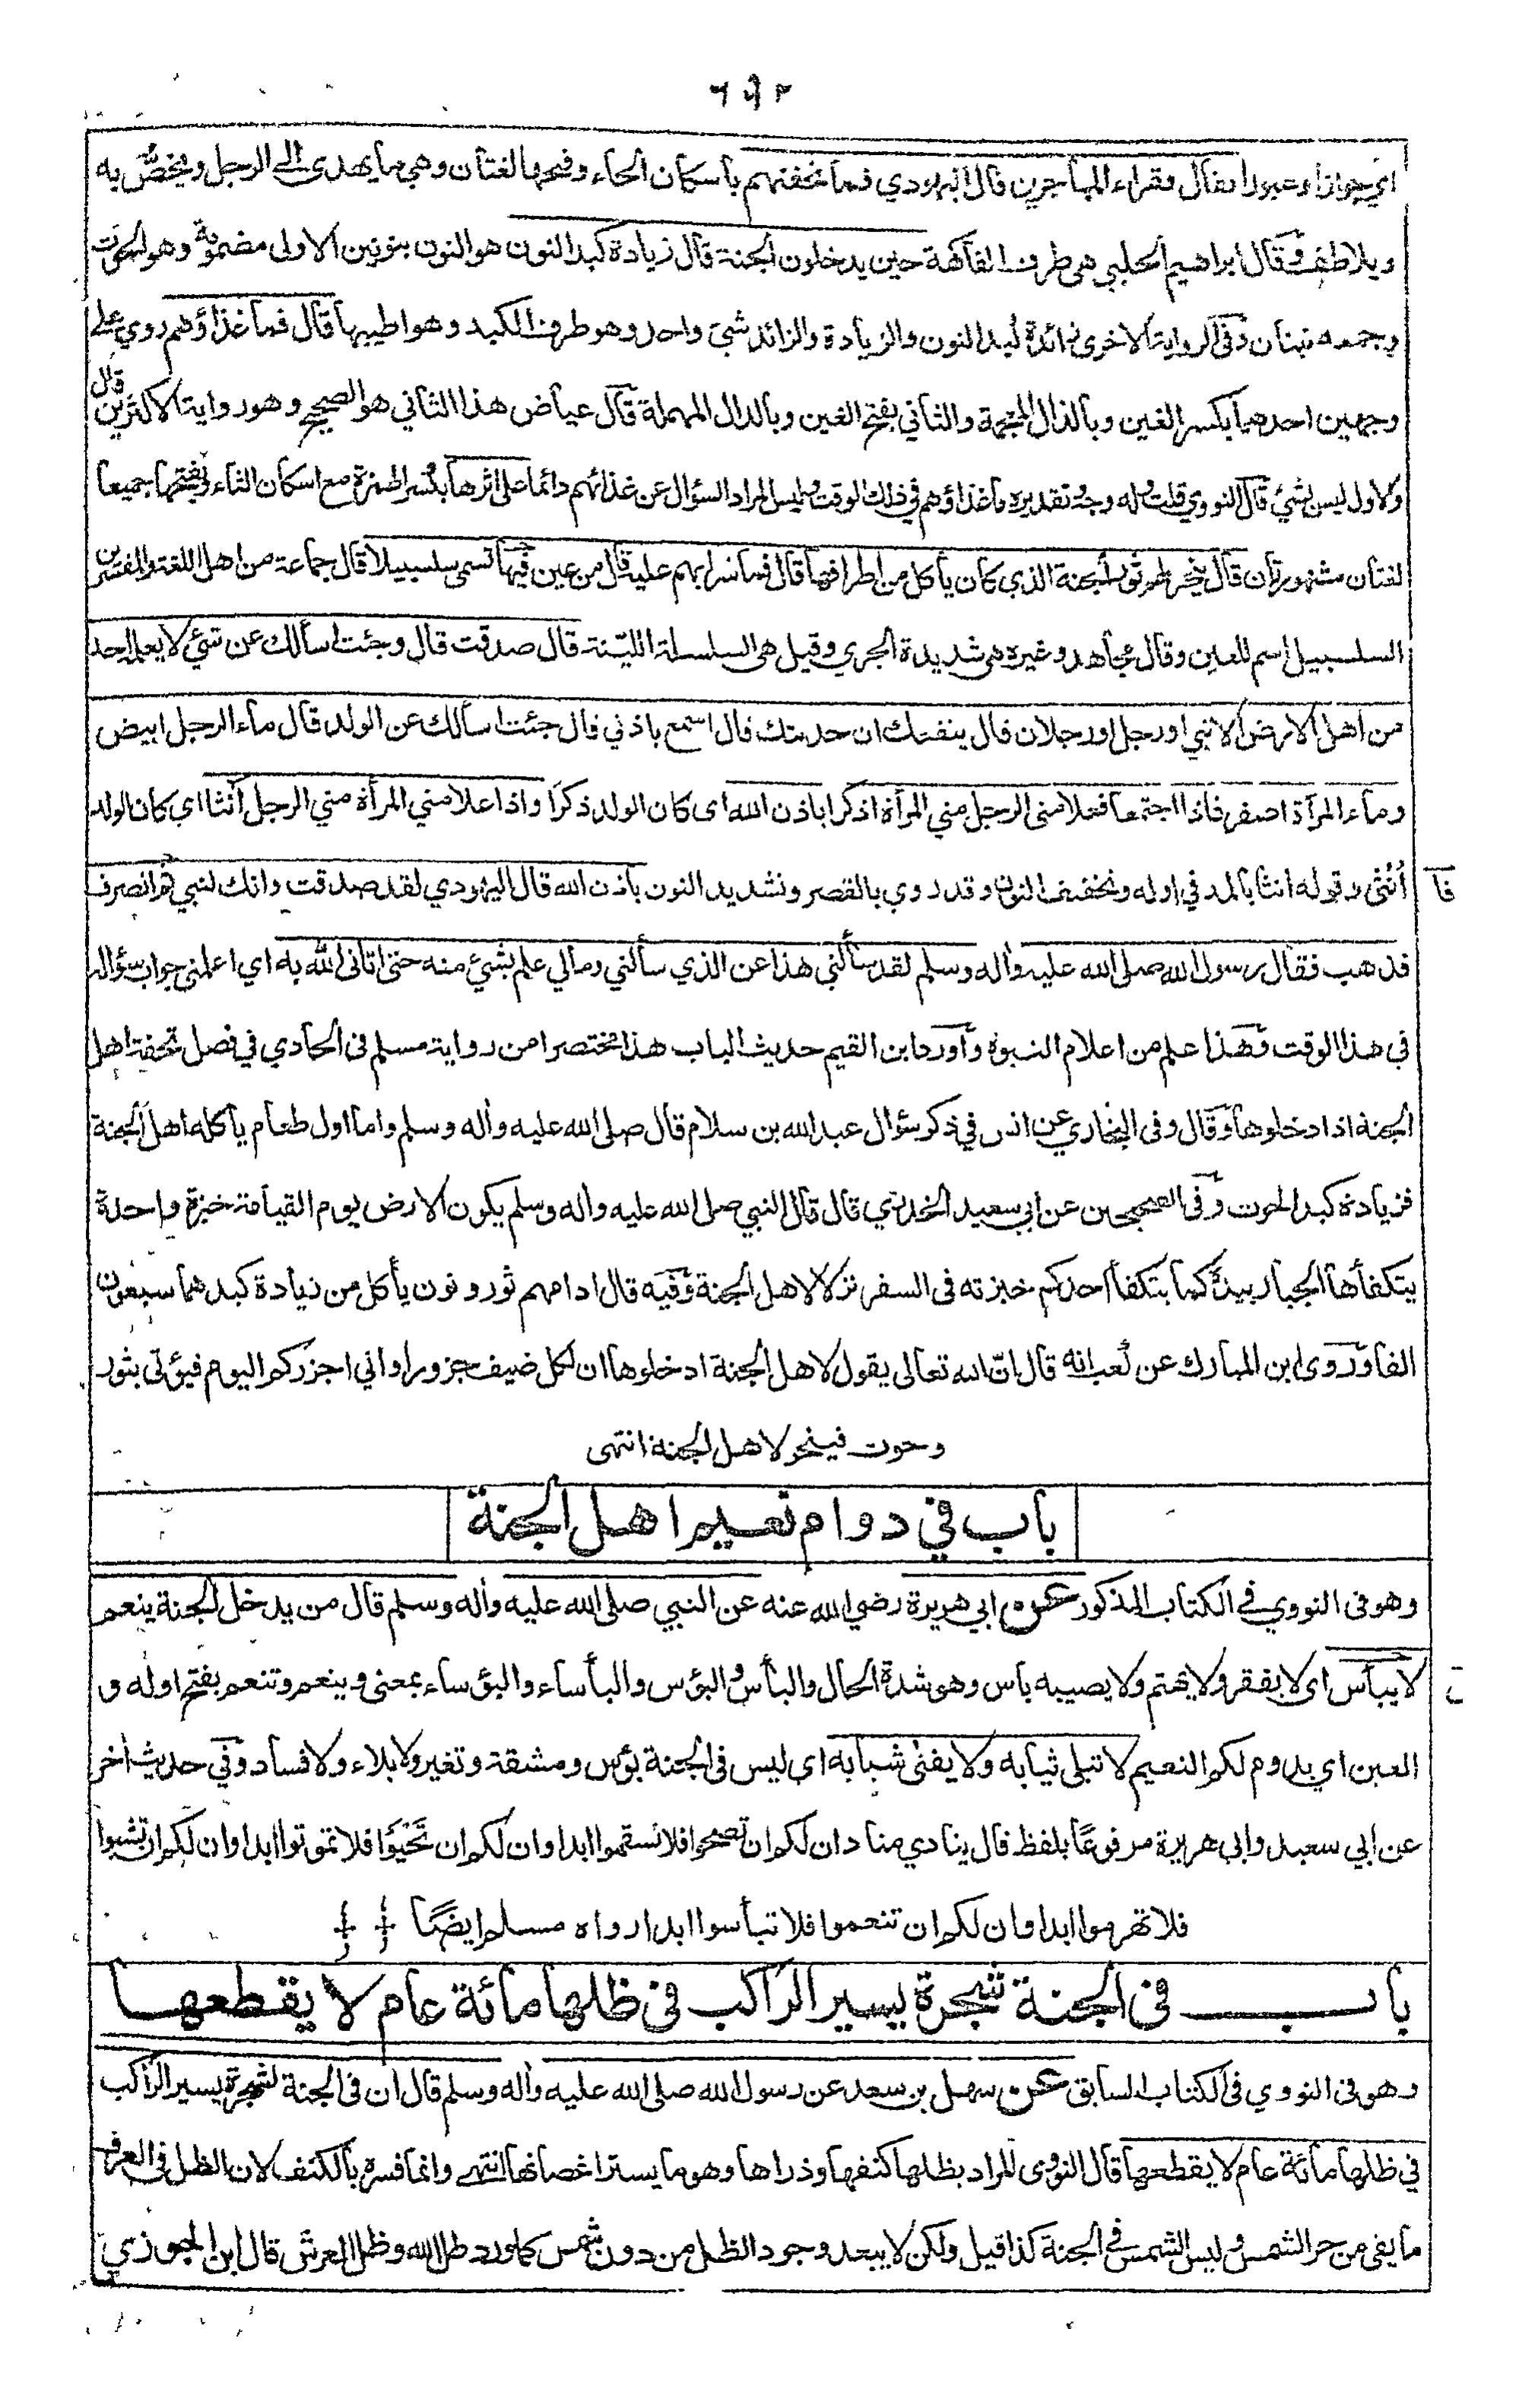 ٦٩٢
اي جوازا وعبورا فقال فقراء المهاجرين قال اليهودي فما تحفتهم باسكان الحاء وفتحها لغتان وهي ما يهدى الى الرجل ويخصّ به
ويلاطف وقال ابراهيم الحلبي هي طرف الفاكهة حين يدخلون الجنة قال زيادة كبد النون هو النون بنونين الاولى مضمومة وهو الحوت
وجمعه نينان وفى الرواية الاخرى زائدة كبد النون والزيادة والزائد شئ واحد وهو طرف الكبد وهو اطيبها قال فما غذاؤهم روي على
وجهين احدهما بكسر الغين وبالذال المعجمة والثاني بفتح الغين وبالدال المهملة قال عياض هذا الثاني هو الصحيح وهو رواية الاكثرين قال
والاول ليس بشئ قال النووي قلت وله وجه وتقديره ما غذاؤهم في ذلك الوقت وليس المراد السؤال عن غذائهم دائما على اثرها بكسر الهمزة مع اسكان الثاء وبفتحها جميعا
لغتان مشهورتان قال ينحر لهم ثور الجنة الذي كان يأكل من اطرافها قال فما شرابهم عليه قال من عين فيها تسمى سلسبيلا قال جماعة من اهل اللغة والمفسرين
السلسبيل اسم للعين وقال مجاهد وغيره هي شديدة الجري وقيل هي السلسلة الليّنة قال صدقت قال وجئت اسألك عن شئ لا يعلمه احد
من اهل الارض الا نبي او رجل او رجلان قال ينفعك ان حدثتك قال اسمع باذني قال جئت اسألك عن الولد قال ماء الرجل ابيض
وماء المرآة اصفر فاذا اجتمعا فعلا منى الرجل مني المرأة اذكرا باذن الله اى كان الولد ذكرًا واذا علا مني المرأة مني الرجل آنثا اى كان الولد
أنثى وقوله انثا بالمد في اوله وتخفيف النون وقد روي بالقصر وتشديد النون باذن الله قال اليهودي لقد صدقت وانك لنبي ثم انصرف
فا
فذهب فقال رسول الله صلى الله عليه وأله وسلم لقد سألني هذا عن الذي سألني ومالي علم بشئ منه حتى اتانى الله به اي اعلمنى جواب سؤاله
في هذا الوقت وهذا علم من اعلام النبوة وأورد ابن القيم حديث الباب هذا مختصرا من رواية مسلم فى الحادي في فصل تحفة اهل
الجنة اذا دخلوها وقال وفى البخاري عن انس في ذكر سؤال عبد الله بن سلام قال صلى الله عليه وأله وسلم واما اول طعام يأكله اهل الجنة
فزيادة كبد الحوت وفى الصحيحين عن ابي سعيد الخدري قال قال النبي صلى الله عليه وأله وسلم يكون الارض يوم القيامة خبزة واحدة
يتكفأها الجبار بيده كما يتكفأ احدكم خبزته فى السفر نزلا لاهل الجنة وفيه قال ادامهم ثور ونون يأكل من زيادة كبدهما سبعون
الفا وروى ابن المبارك عن كعب انه قال انّ الله تعالى يقول لاهل الجنة ادخلوها ان لكل ضيف جزورا واني اجزركم اليوم فيؤتى بثور
وحوت فينحر لاهل الجنة انتهى
باب في دوام نعيم اهل الجنة
وهو فى النووي في الكتاب المذكور عن ابي هريرة رضي الله عنه عن النبي صلى الله عليه وأله وسلم قال من يدخل الجنة ينعم
لا يبأس اى لا يفتقر ولا يهتم ولا يصيبه بأس وهو شدة الحال والبأس والبؤس والبأساء والبؤساء بمعنى وينعم وتنعم بفتح اوله و
العين اي يدوم لكم النعيم لا تبلى ثيابه ولا يفنى شبابه اى ليس فى الجنة بؤس ومشقة وتغير ولا بلاء ولا فساد وفي حديث أخر
عن ابي سعيد وابي هريرة مرفوعًا بلفظ قال ينادي مناد ان لكم ان تصحوا فلا تسقموا ابدا وان لكم ان تَحْيَوْا فلا تموتوا ابدا وان لكم ان تشبوا
فلا تهرموا ابدا وان لكم ان تنعموا فلا تبأسوا ابدا رواه مسلم ايضًا
باب فى الجنة شجرة يسير الراكب فى ظلها مائة عام لا يقطعها
وهو فى النووي فى الكتاب السابق عن سهل بن سعد عن رسول الله صلى الله عليه وأله وسلم قال ان فى الجنة لشجرة يسير الراكب
في ظلها مائة عام لا يقطعها قال النووى المراد بظلها كنفها وذراها وهو ما يستر اغصانها انتهى وانما فسره بالكنف لان الظل فى العرف
ما يقى من حر الشمس وليس الشمس في الجنة كذا قيل ولكن لا يبعد وجود الظل من دون شمس كما ورد ظل الله وظل العرش قال ابن الجوزي